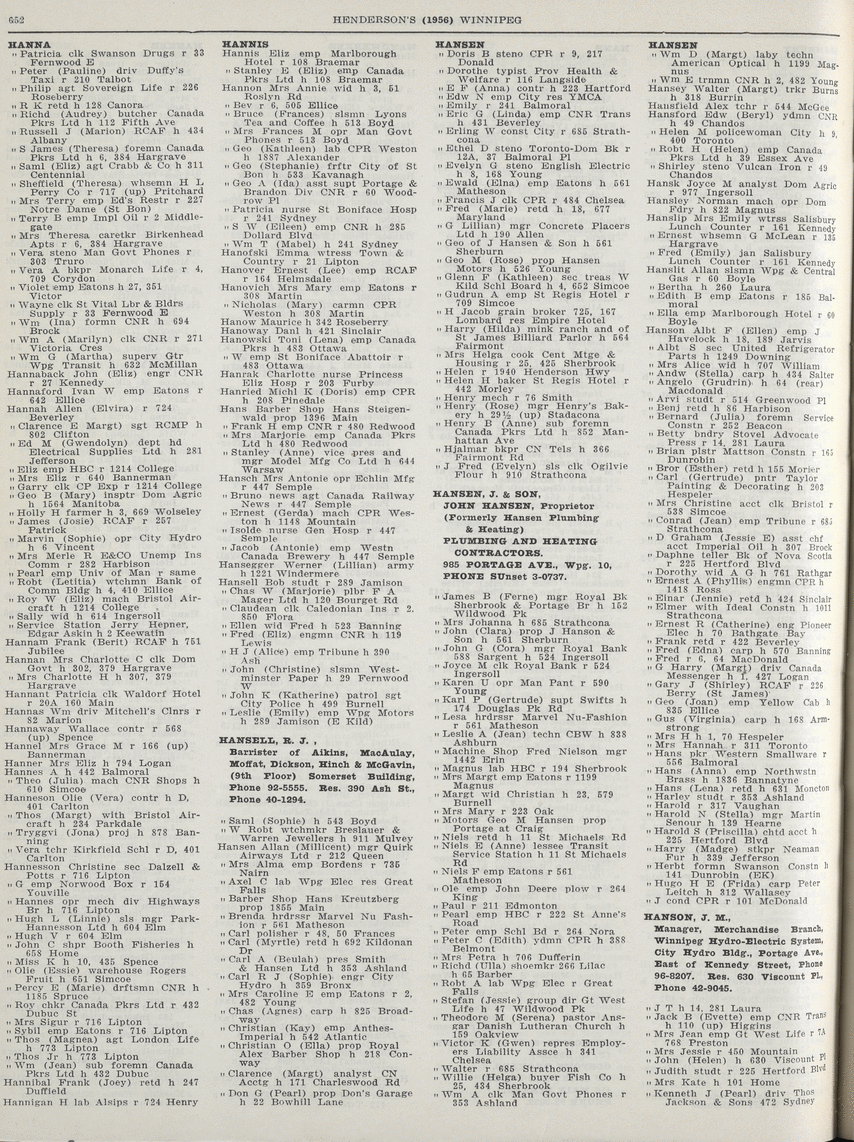 652
HENDERSON'S (1956) WINNIPEG
HANNA
" Patricia clk Swanson Drugs r 33
Fernwood E
" Peter (Pauline) driv Duffy's
Taxi r 210 Talbot
" Philip agt Sovereign Life r 226
Roseberry
" R K retd h 128 Canora
" Richd (Audrey) butcher Canada
Pkrs Ltd h 112 Fifth Ave
" Russell J (Marion) RCAF h 434
Albany
" S James (Theresa) foremn Canada
Pkrs Ltd h 6, 384 Hargrave
" Saml (Eliz) agt Crabb & Co h 311
Centennial
" Sheffield (Theresa) whsemn H L
Perry Co r 717 (up) Pritchard
" Mrs Terry emp Ed's Restr r 227
Notre Dame (St Bon)
" Terry B emp Impl Oil r 2 Middle-
gate
" Mrs Theresa caretkr Birkenhead
Apts r 6, 384 Hargrave
" Vera steno Man Govt Phones r
303 Truro
" Vera A bkpr Monarch Life r 4,
709 Corydon
" Violet emp Eatons h 27, 351
Victor
" Wayne clk St Vital Lbr & Bldrs
Supply r 33 Fernwood E
" Wm (Ina) formn CNR h 694
Brock
" Wm A (Marilyn) clk CNR r 271
Victoria Cres
" Wm G (Martha) superv Gtr
Wpg Transit h 632 McMillan
Hannaback John (Eliz) engr CNR
r 27 Kennedy
Hannaford Ivan W emp Eatons r
642 Ellice
Hannah Allen (Elvira) r 724
Beverley
" Clarence E Margt) sgt RCMP h
802 Clifton
" Ed M (Gwendolyn) dept hd
Electrical Supplies Ltd h 281
Jefferson
" Eliz emp HBC r 1214 College
" Mrs Eliz r 640 Bannerman
" Garry clk CP Exp r 1214 College
" Geo B (Mary) insptr Dom Agric
h 1564 Manitoba
" Holly H farmer h 3, 669 Wolseley
" James (Josie) RCAF r 257
Patrick
" Marvin (Sophie) opr City Hydro
h 6 Vincent
" Mrs Merle R E&CO Unemp Ins
Comm r 282 Harbison
" Pearl emp Univ of Man r same
" Robt (Letitia) wtchmn Bank of
Comm Bldg h 4, 410 Ellice
" Roy W (Eliz) mach Bristol Air-
craft h 1214 College
" Sally wid h 614 Ingersoll
" Service Station Jerry Hepner,
Edgar Askin h 2 Keewatin
Hannam Frank (Berit) RCAF h 751
Jubilee
Hannan Mrs Charlotte C clk Dom
Govt h 302, 379 Hargrave
" Mrs Charlotte H h 307, 379
Hargrave
Hannant Patricia clk Waldorf Hotel
r 20A 160 Main
Hannas Wm driv Mitchell's Clnrs r
82 Marion
Hannaway Wallace contr r 568
(up) Spence
Hannel Mrs Grace M r 166 (up)
Bannerman
Hanner Mrs Eliz h 794 Logan
Hannes A h 442 Balmoral
" Theo (Julia) mach CNR Shops h
610 Simcoe
Hanneson Olie (Vera) contr h D,
401 Carlton
" Thos (Margt) with Bristol Air-
craft h 234 Parkdale
" Tryggvi (Jona) proj h 878 Ban-
ning
" Vera tchr Kirkfield Schl r D, 401
Carlton
Hannesson Christine sec Dalzell &
Potts r 716 Lipton
" G emp Norwood Box r 154
Youville
" Hannes opr mech div Highways
Br h 716 Lipton
" Hugh L (Linnie) sls mgr Park-
Hannesson Ltd h 604 Elm
" Hugh V r 604 Elm
" John C shpr Booth Fisheries h
658 Home
" Miss K h 10, 435 Spence
" Olie (Essie) warehouse Rogers
Fruit h 651 Simcoe
" Percy E (Marie) drftsmn CNR h
1185 Spruce
" Roy chkr Canada Pkrs Ltd r 432
Dubuc St
" Mrs Sigur r 716 Lipton
" Sybil emp Eatons r 716 Lipton
" Thos (Magnea) agt London Life
h 773 Lipton
" Thos Jr h 773 Lipton
" Wm (Jean) sub foremn Canada
Pkrs Ltd h 432 Dubuc
Hannibal Frank (Joey) retd h 247
Duffield
Hannigan H lab Alsips r 724 Henry
HANNIS
Hannis Eliz emp Marlborough
Hotel r 108 Braemar
" Stanley E (Eliz) emp Canada
Pkrs Ltd h 108 Braemar
Hannon Mrs Annie wid h 3, 51
Roslyn Rd
" Bev r 6, 505 Ellice
" Bruce (Frances) slsmn Lyons
Tea and Coffee h 513 Boyd
" Mrs Frances M opr Man Govt
Phones r 513 Boyd
" Geo (Kathleen) lab CPR Weston
h 1887 Alexander
" Geo (Stephanie) frftr City of St
Bon h 533 Kavanagh
" Geo A (Ida) asst supt Portage &
Brandon Div CNR r 60 Wood-
row Pl
" Patricia nurse St Boniface Hosp
r 241 Sydney
" S W (Eileen) emp CNR h 285
Dollard Blvd
" Wm T (Mabel) h 241 Sydney
Hanofski Emma wtress Town &
Country r 21 Lipton
Hanover Ernest (Lee) emp RCAF
r 164 Helmsdale
Hanovich Mrs Mary emp Eatons r
308 Martin
" Nicholas (Mary) carmn CPR
Weston h 308 Martin
Hanow Maurice h 342 Roseberry
Hanoway Danl h 421 Sinclair
Hanowski Toni (Lena) emp Canada
Pkrs h 483 Ottawa
" W emp St Boniface Abattoir r
483 Ottawa
Hanrak Charlotte nurse Princess
Eliz Hosp r 203 Furby
Hanried Michl K (Doris) emp CPR
h 208 Pinedale
Hans Barber Shop Hans Steigen-
wald prop 1396 Main
" Frank H emp CNR r 480 Redwood
" Mrs Marjorie emp Canada Pkrs
Ltd h 480 Redwood
" Stanley (Anne) vice pres and
mgr Model Mfg Co Ltd h 644
Warsaw
Hansch Mrs Antonie opr Echlin Mfg
r 447 Semple
" Bruno news agt Canada Railway
News r 447 Semple
" Ernest (Gerda) mach CPR Wes-
ton h 1148 Mountain
" Isolde nurse Gen Hosp r 447
Semple
" Jacob (Antonie) emp Westn
Canada Brewery h 447 Semple
Hansegger Werner (Lillian) army
h 1221 Windermere
Hansell Bob studt r 289 Jamison
" Chas W (Marjorie) plbr F A
Mager Ltd h 120 Bourget Rd
" Claudean clk Caledonian Ins r 2,
850 Flora
" Ellen wid Fred h 523 Banning
" Fred (Eliz) engmn CNR h 119
Lewis
" H J (Alice) emp Tribune h 390
Ash
" John (Christine) slsmn West-
minster Paper h 29 Fernwood
W
" John K (Katherine) patrol sgt
City Police h 499 Burnell
" Leslie (Emily) emp Wpg Motors
h 289 Jamison (E Kild)
HANSELL, R. J. ,
Barrister of Aikins, MacAulay,
Moffat, Dickson, Hinch & McGavin,
(9th Floor) Somerset Building,
Phone 92-5555. Res. 390 Ash St.,
Phone 40-1294.
" Saml (Sophie) h 543 Boyd
" W Robt wtchmkr Breslauer &
Warren Jewellers h 911 Mulvey
Hansellan Allan (Millicent) mgr Quirk
Airways Ltd r 212 Queen
" Mrs Alma emp Bordens r 735
Nairn
" Axel C lab Wpg Elec res Great
Falls
" Barber Shop Hans Kreutzberg
prop 1855 Main
" Brenda hrdrssr Marvel Nu Fash-
ion r 561 Matheson
" Carl polisher r 48, 50 Frances
" Carl (Myrtle) retd h 692 Kildonan
Dr
" Carl A (Beulah) pres Smith
& Hansen Ltd h 353 Ashland
" Carl R J (Sophie) engr City
Hydro h 359 Bronx
" Mrs Caroline E emp Eatons r 2,
482 Young
" Chas (Agnes) carp h 825 Broad-
way
" Christian (Kay) emp Anthes-
Imperial h 542 Atlantic
" Christian O (Ella) prop Royal
Alex Barber Shop h 218 Con-
way
" Clarence (Margt) analyst CN
Acctg h 171 Charleswood Rd
" Don G (Pearl) prop Don's Garage
h 22 Bowhill Lane
HANSEN
" Doris B steno CPR r 9, 217
Donald
" Dorothe typist Prov Health &
Welfare r 116 Langside
" E F (Anna) contr h 223 Hartford
" Edw N emp City res YMCA
" Emily r 241 Balmoral
" Eric G (Linda) emp CNR Trans
h 431 Beverley
" Erling W const City r 685 Strath-
cona
" Ethel D steno Toronto-Dom Bk r
12A, 37 Balmoral Pl
" Evelyn G steno English Electric
h 8, 168 Young
" Ewald (Elna) emp Eatons h 561
Matheson
" Francis J clk CPR r 484 Chelsea
" Fred (Marie) retd h 18, 677
Maryland
" G Lillian) mgr Concrete Placers
Ltd h 190 Allen
" Geo of J Hansen & Son h 561
Sherburn
" Geo M (Rose) prop Hansen
Motors h 526 Young
" Glenn F (Kathleen) sec treas W
Kild Schl Board h 4, 652 Simcoe
" Gudrun A emp St Regis Hotel r
709 Simcoe
" H Jacob grain broker 725, 167
Lombard res Empire Hotel
" Harry (Hilda) mink ranch and of
St James Billiard Parlor h 564
Fairmont
" Mrs Helga cook Cent Mtge &
Housing r 25, 425 Sherbrook
" Helen r 1940 Henderson Hwy
" Helen H baker St Regis Hotel r
442 Morley
" Henry mech r 76 Smith
" Henry (Rose) mgr Henry's Bak-
ery h 29½ (up) Stadacona
" Henry B (Anne) sub foremn
Canada Pkrs Ltd h 852 Man-
hattan Ave
" Hjalmar bkpr CN Tels h 366
Fairmont Rd
" J Fred (Evelyn) sls clk Ogilvie
Flour h 910 Strathcona
HANSEN, J. & SON,
JOHN HANSEN, Proprietor
(Formerly Hansen Plumbing
& Heating)
PLUMBING AND HEATING
CONTRACTORS.
985 PORTAGE AVE., Wpg. 10,
PHONE SUnset 3-0737.
" James B (Ferne) mgr Royal Bk
Sherbrook & Portage Br h 152
Wildwood Pk
" Mrs Johanna h 685 Strathcona
" John (Clara) prop J Hansen &
Son h 561 Sherburn
" John G (Cora) mgr Royal Bank
588 Sargent h 524 Ingersoll
" Joyce M clk Royal Bank r 524
Ingersoll
" Karen U opr Man Pant r 590
Young
" Karl P (Gertrude) supt Swifts h
174 Douglas Pk Rd
" Lesa hrdrssr Marvel Nu-Fashion
r 561 Matheson
" Leslie A (Jean) techn CBW h 838
Ashburn
" Machine Shop Fred Nielson mgr
1442 Erin
" Magnus lab HBC r 194 Sherbrook
" Mrs Margt emp Eatons r 1199
Magnus
" Margt wid Christian h 23, 579
Burnell
" Mrs Mary r 223 Oak
" Motors Geo M Hansen prop
Portage at Craig
" Niels retd h 11 St Michaels Rd
" Niels E (Anne) lessee Transit
Service Station h 11 St Michaels
Rd
" Niels F emp Eatons r 561
Matheson
" Ole emp John Deere plow r 264
King
" Paul r 211 Edmonton
" Pearl emp HBC r 222 St Anne's
Road
" Peter emp Schl Bd r 264 Nora
" Peter C (Edith) ydmn CPR h 388
Belmont
" Mrs Petra h 706 Dufferin
" Richd (Ulla) shoemkr 266 Lilac
h 65 Barber
" Robt A lab Wpg Elec r Great
Falls
" Stefan (Jessie) group dir Gt West
Life h 47 Wildwood Pk
" Theodore M (Serena) pastor Ans-
gar Danish Lutheran Church h
159 Oakview
" Victor K (Gwen) repres Employ-
ers Liability Assce h 341
Chelsea
" Walter r 685 Strathcona
" Willie (Helga) buyer Fish Co h
25, 434 Sherbrook
" Wm A clk Man Govt Phones r
353 Ashland
HANSEN
" Wm D (Margt) laby techn
American Optical h 1199 Mag-
nus
" Wm E trnmn CNR h 2, 482 Young
Hansey Walter (Margt) trkr Burns
h 318 Burrin
Hansfield Alex tchr r 544 McGee
Hansford Edw (Beryl) ydmn CNR
h 49 Chandos
" Helen M policewoman City h 9,
400 Toronto
" Robt H (Helen) emp Canada
Pkrs Ltd h 39 Essex Ave
" Shirley steno Vulcan Iron r 49
Chandos
Hansk Joyce M analyst Dom Agric
r 977 Ingersol
Hansley Norman mach opr Dom
Fdry h 822 Magnus
Hanslip Mrs Emily wtrss Salisbury
Lunch Counter r 161 Kennedy
" Ernest whsemn G McLean r 135
Hargrave
" Fred (Emily) jan Salisbury
Lunch Counter r 161 Kennedy
Hanslit Allan slsmn Wpg & Central
Gas r 60 Boyle
" Bertha h 260 Laura
" Edith B emp Eatons r 185 Bal-
moral
" Ella emp Marlborough Hotel r 60
Boyle
Hanson Albt F (Ellen) emp J
Havelock h 18, 189 Jarvis
" Albt S sec United Refrigerator
Parts h 1249 Downing
" Mrs Alice wid h 707 William
" Andw (Stella) carp h 434 Salter
" Angelo (Grudrin) h 64 (rear)
Macdonald
" Arvi studt r 514 Greenwood Pl
" Benj retd h 86 Harbison
" Bernard (Julia) foremn Service
Constn r 252 Beacon
" Betty bndry Stovel Advocate
Press r 14, 281 Laura
" Brian plstr Mattson Constn r 165
Dunrobin
" Bror (Esther) retd h 155 Morier
" Carl (Gertrude) pntr Taylor
Painting & Decorating h 203
Hespeler
" Mrs Christine acct clk Bristol r
538 Simcoe
" Conrad (Jean) emp Tribune r 685
Strathcona
" D Graham (Jessie E) asst chf
acct Imperial Oil h 307 Brock
" Daphne teller Bk of Nova Scotia
r 225 Hertford Blvd
" Dorothy wid A G h 761 Rathgar
" Ernest A (Phyllis) engmn CPR h
1418 Ross
" Einar (Jennie) retd h 424 Sinclair
" Elmer with Ideal Constn h 1011
Strathcona
" Ernest R (Catherine) eng Pioneer
Elec h 70 Bathgate Bay
" Frank retd r 422 Beverley
" Fred (Edna) carp h 570 Banning
" Fred r 6, 64 MacDonald
" G Harry (Margt) driv Canada
Messenger h 1, 427 Logan
" Gary J (Shirley) RCAF r 226
Berry (St James)
" Geo (Joan) emp Yellow Cab h
825 Ellice
" Gus (Virginia) carp h 168 Arm-
strong
" Mrs H h 1, 70 Hespeler
" Mrs Hannah r 311 Toronto
" Hans pkr Western Smallware r
556 Balmoral
" Hans (Anna) emp Northwstn
Brass h 1836 Bannatyne
" Hans (Lena) retd h 631 Moncton
" Harley studt r 353 Ashland
" Harold r 317 Vaughan
" Harold N (Stella) mgr Martin
Senour h 139 Hearne
" Harold S (Priscilla) chtd acct h
225 Hertford Blvd
" Harry (Madge) stkpr Neaman
Fur h 339 Jefferson
" Herbt formn Swanson Constn h
141 Dunrobin (EK)
" Hugo H E (Frida) carp Peter
Leitch h 312 Wallasey
" J cond CPR r 101 McDonald
HANSON, J. M.,
Manager, Merchandise Branch,
Winnipeg Hydro-Electric System,
City Hydro Bldg., Portage Ave.,
East of Kennedy Street, Phone
96-8207. Res. 630 Viscount Pl.,
Phone 42-9045.
" J T h 14, 281 Laura
" Jack B (Evette) emp CNR Trans
h 110 (up) Higgins
" Mrs Jean emp Gt West Life r 7A
768 Preston
" Mrs Jessie r 450 Mountain
" John (Helen) h 630 Viscount Pl
" Judith studt r 225 Hertford Blvd
" Mrs Kate h 101 Home
" Kenneth J (Pearl) driv Thos
Jackson & Sons 472 Sydney